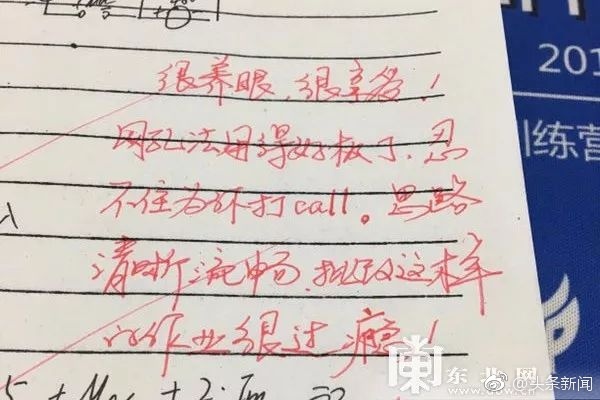 201
训练营
很养眼,很享受!
网孔法用得好极了,忍
不住为你打call。思路
清晰流畅,批改这样
的作业很过瘾!
东北网
www.dbw.cn
@头条新闻